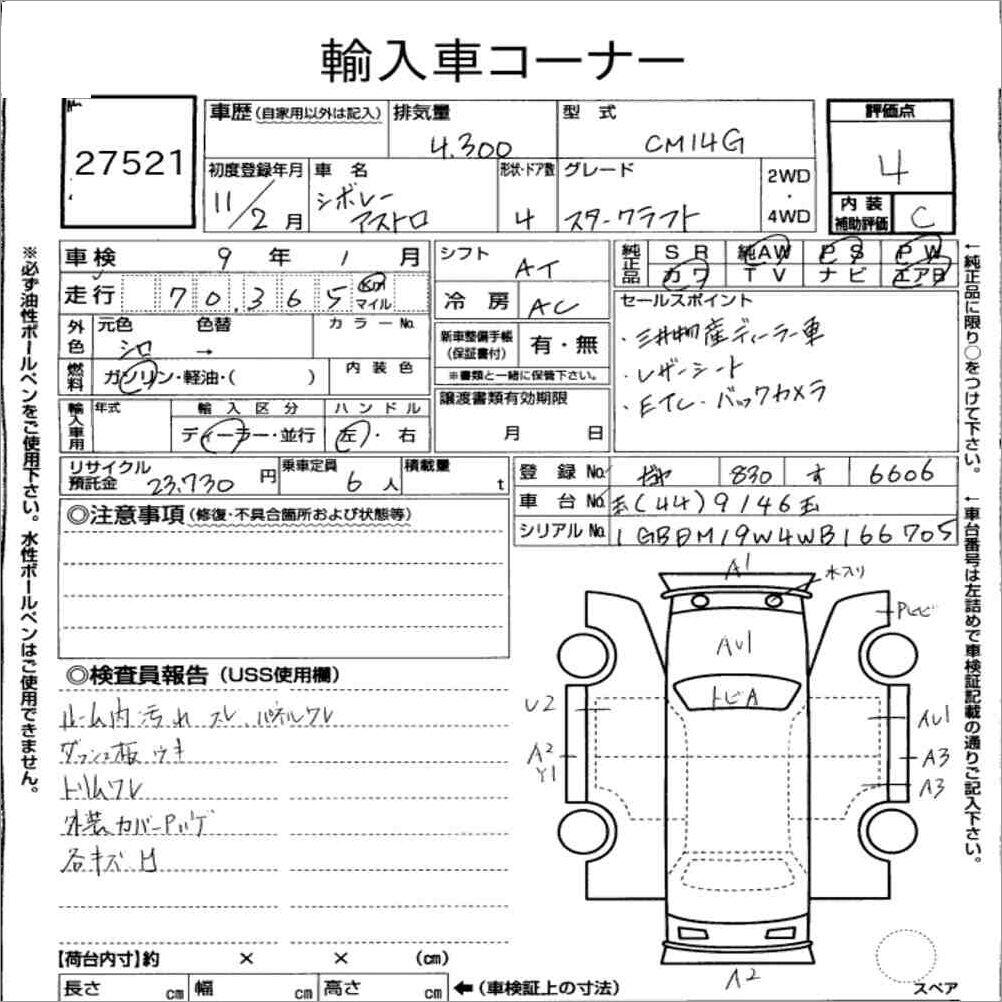 輸入車コーナー
27521
車歴 (自家用以外は記入)
排気量
4.300
型 式
CM14G
評価点
4
初度登録年月
11/2月
車 名
シボレー
アストロ
形状・ドア数
4
グレード
スタークラフト
2WD
・
4WD
内 装
補助評価
C
車検 9 年 1 月
走行 70.365 Km
マイル
シフト
AT
冷 房
AC
純正品
SR 純AW PS PW
カワ TV ナビ エアB
外色
元色 色替
シロ →
カラーNo.
燃料
ガソリン・軽油・( )
内 装 色
新車整備手帳
(保証書付)
有・無
※書類と一緒に保管下さい。
セールスポイント
・三井物産ディーラー車
・レザーシート
・ETC・バックカメラ
輸入車用
年式
輸 入 区 分
ディーラー・並行
ハ ン ド ル
左・右
譲渡書類有効期限
月 日
リサイクル
預託金 23,730 円
乗車定員
6 人
積載量
t
登 録 No. 830 す 6606
車 台 No. (44)9146
シリアル No. 1GBDM19W4WB166705
◎注意事項 (修復・不具合箇所および状態等)
A1
水入り
Pヒビ
AU1
トビA
U2
A2
Y1
AU1
A3
A3
A2
◎検査員報告 (USS使用欄)
ルーム内 汚れ スレ パネルワレ
ダッシュ板 ウキ
トリムワレ
外装カバーPハゲ
各キズ 凹
【荷台内寸】約 × × (cm)
長さ cm 幅 cm 高さ cm
←(車検証上の寸法)
スペア
※必ず油性ボールペンをご使用下さい。水性ボールペンはご使用できません。
←純正品に限り○をつけて下さい。
←車台番号は左詰めで車検証記載の通りご記入下さい。